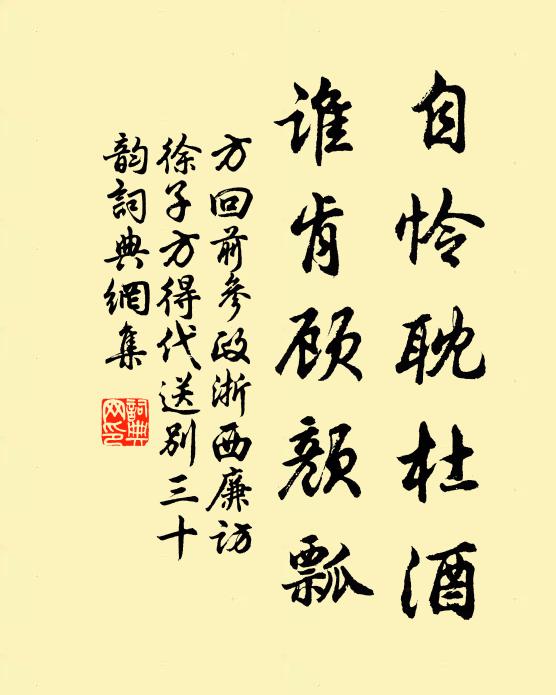 自怜耽杜酒
谁肯顾颜瓢
方回前參政浙西廉访
徐子方得代送别三十
韵詞典網集
詞典
网印